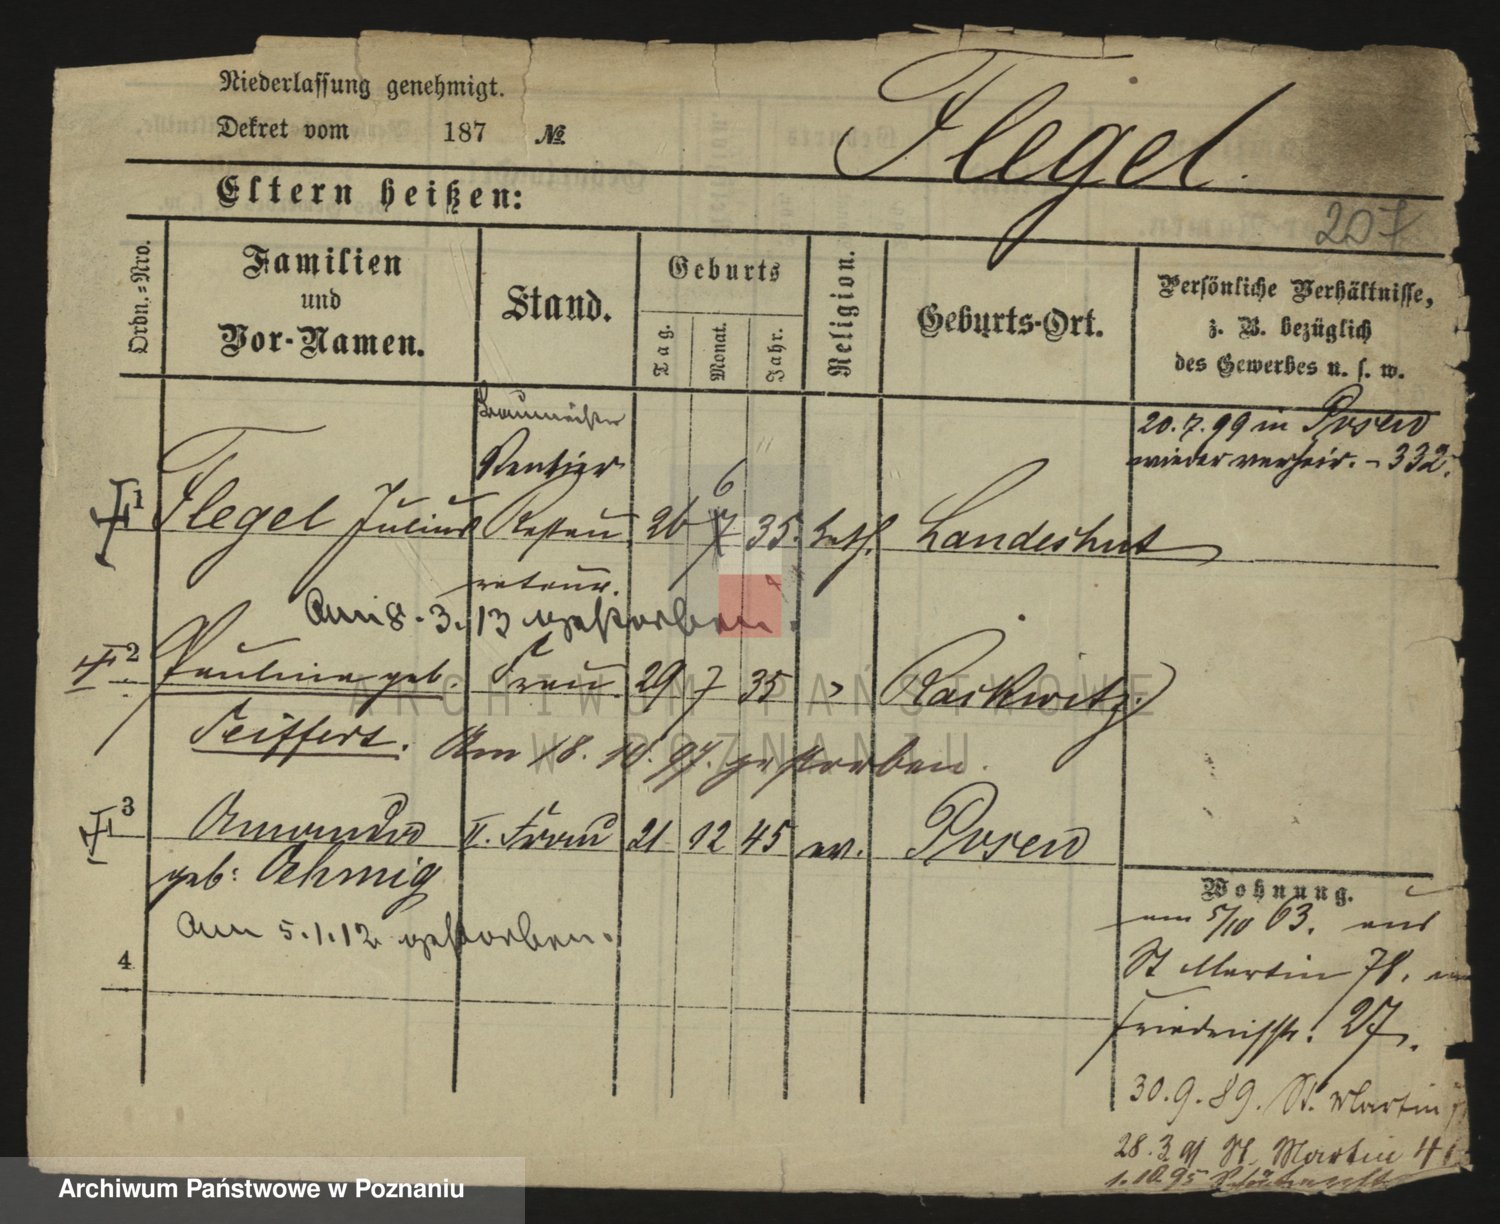 Niederlassung genehmigt.
Dekret vom 187 №
Flegel.
Eltern heißen:
207
Ordn.-Nro.
Familien
und
Vor-Namen.
Stand.
Geburts
Tag.
Monat.
Jahr.
Religion.
Geburts-Ort.
Persönliche Verhältnisse,
z. B. bezüglich
des Gewerbes u. s. w.
Baumeister
Rentier
20.7.99 in Posen
wieder verheir. - 332.
1 Flegel Julius Restau 26 7 6 35. kath. Landeshut
rateur.
Am 8.3.13 gestorben.
2 Pauline geb. Frau 29 7 35 " Rackwitz.
Seiffert. Am 18.10.97. gestorben.
3 Amanda II. Frau 21 12 45 ev. Posen
geb: Oehmig
Am 5.1.12 gestorben.
4
Wohnung.
am 5/10 63. aus
St Martin 78. 
Friedrichstr. 27.
30.9.89. St. Martin
28.3.91 St. Martin 4
1.10.95
ARCHIWUM PAŃSTWOWE
W POZNANIU
Archiwum Państwowe w Poznaniu